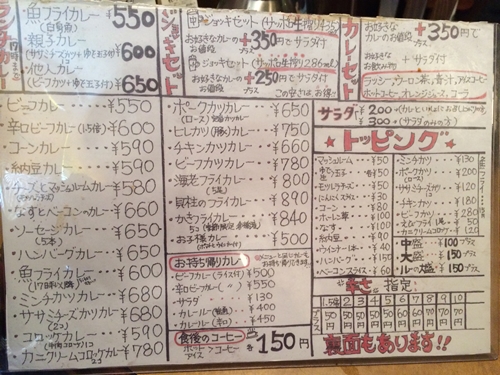 ランチカレー
・魚フライカレー ¥550
(白身魚)
・親子カレー
(ササミチーズカツ+ゆで玉子付) ¥600
・他人カレー
(ビーフカツ+ゆで玉子付) ¥650
ジョッキセット
中ジョッキセット(サッポロ生搾り435ml)
お好きなカレーのお値段 +350円でサラダ付
小ジョッキセット(サッポロ生搾り286ml)
お好きなカレーのお値段 +250円でサラダ付
カレーセット
お好きなカレーのお値段 +350円で
プラス サラダ付
お飲み物付
ラッシー、ウーロン茶、青汁、アイスコーヒー
ホットコーヒー、オレンジジュース、コーラ
サラダ ¥200
¥300 (サラダのみの方)
・ビーフカレー ¥550
・辛口ビーフカレー(1.5倍) ¥600
・コーンカレー ¥590
・納豆カレー ¥590
・チーズとマッシュルームカレー ¥580
・なすとベーコンカレー ¥600
・ソーセージカレー ¥650
(5本)
・ハンバーグカレー ¥650
・魚フライカレー ¥600
・ミンチカツカレー ¥680
・ササミチーズカツカレー ¥680
(2コ)
・コロッケカレー ¥590
・カニクリームコロッケカレー ¥780
・ポークカツカレー ¥650
(ロース)
・ヒレカツカレー ¥750
・チキンカツカレー ¥660
・ビーフカツカレー ¥780
・海老フライカレー ¥800
・貝柱のフライカレー ¥890
・かきフライカレー ¥840
・お子様カレー ¥500
お持ち帰りカレー
ビーフカレー(ライス付) ¥500
辛口ビーフカレー(〃) ¥550
サラダ ¥130
カレールー(甘口) ¥400
カレールー(辛口) ¥450
食後のコーヒー
ホット>コーヒー
アイス
150円
★トッピング★
・マッシュルーム ¥50
・ゆで玉子 ¥50
・モツァレラチーズ ¥50
・にんにくスライス ¥30
・コーン ¥50
・ホーレン草 ¥50
・なす ¥50
・納豆 ¥90
・ウインナー1本 ¥40
・ハンバーグ ¥150
・ベーコンスライス ¥60
・ミンチカツ ¥130
・ポークカツ ¥200
(ロース)
・ササミチーズカツ ¥120
・チキンカツ ¥180
・ビーフカツ ¥280
・カニクリームコロッケ ¥120
・中盛 ¥100プラス
・大盛 ¥150プラス
・ルー大盛 ¥150プラス
★辛さ指定★
1.5倍 2 3 4 5 6 7 8 9 10
プラス10円
裏面もあります!!